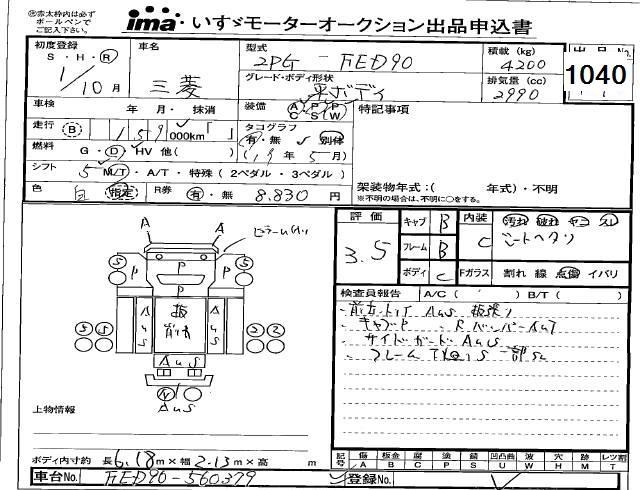 ㊟赤太枠内は必ずボールペンでご記入下さい。
ima いすゞモーターオークション出品申込書
初度登録 車名 型式 積載 (kg) 出品No.
S・H・R 三菱 2PG-FED90 4200 1040
1/10月 グレード・ボディ形状 平ボディ 排気量 (cc) 2990
車検 年 月・抹消 装備 A P P C S W 特記事項
走行 B 159 000km「 」 タコグラフ 有・無 別体
燃料 G・D・HV 他( ) (19年5月)
シフト 5 M/T・A/T・特殊 (2ペダル・3ペダル)
架装物年式:( 年式)・不明
色 白 指定 R券 有・無 8.830円
※不明の場合は、不明に○をする。
評価 3.5 キャブ B 内装 C 汚れ 破れ ヤコ スレ
フレーム B シートヘタリ
ボディ C Fガラス 割れ 線 点傷 イバリ
A A ピラーム
5 P P P
5 5 AuS 板 AuS 2 2
AuS
N
AuS
検査員報告 A/C ( ) B/T ( )
サイドガード AuS
上物情報
ボディ内寸約 長6.18m×幅2.13m×高 m
記号 傷 A 板金 B 腐 C 塗 P 錆 S 凹凸曲 U 波 W 穴 H 跡 M レツ割 T
車台No. FED90-560379 登録No.